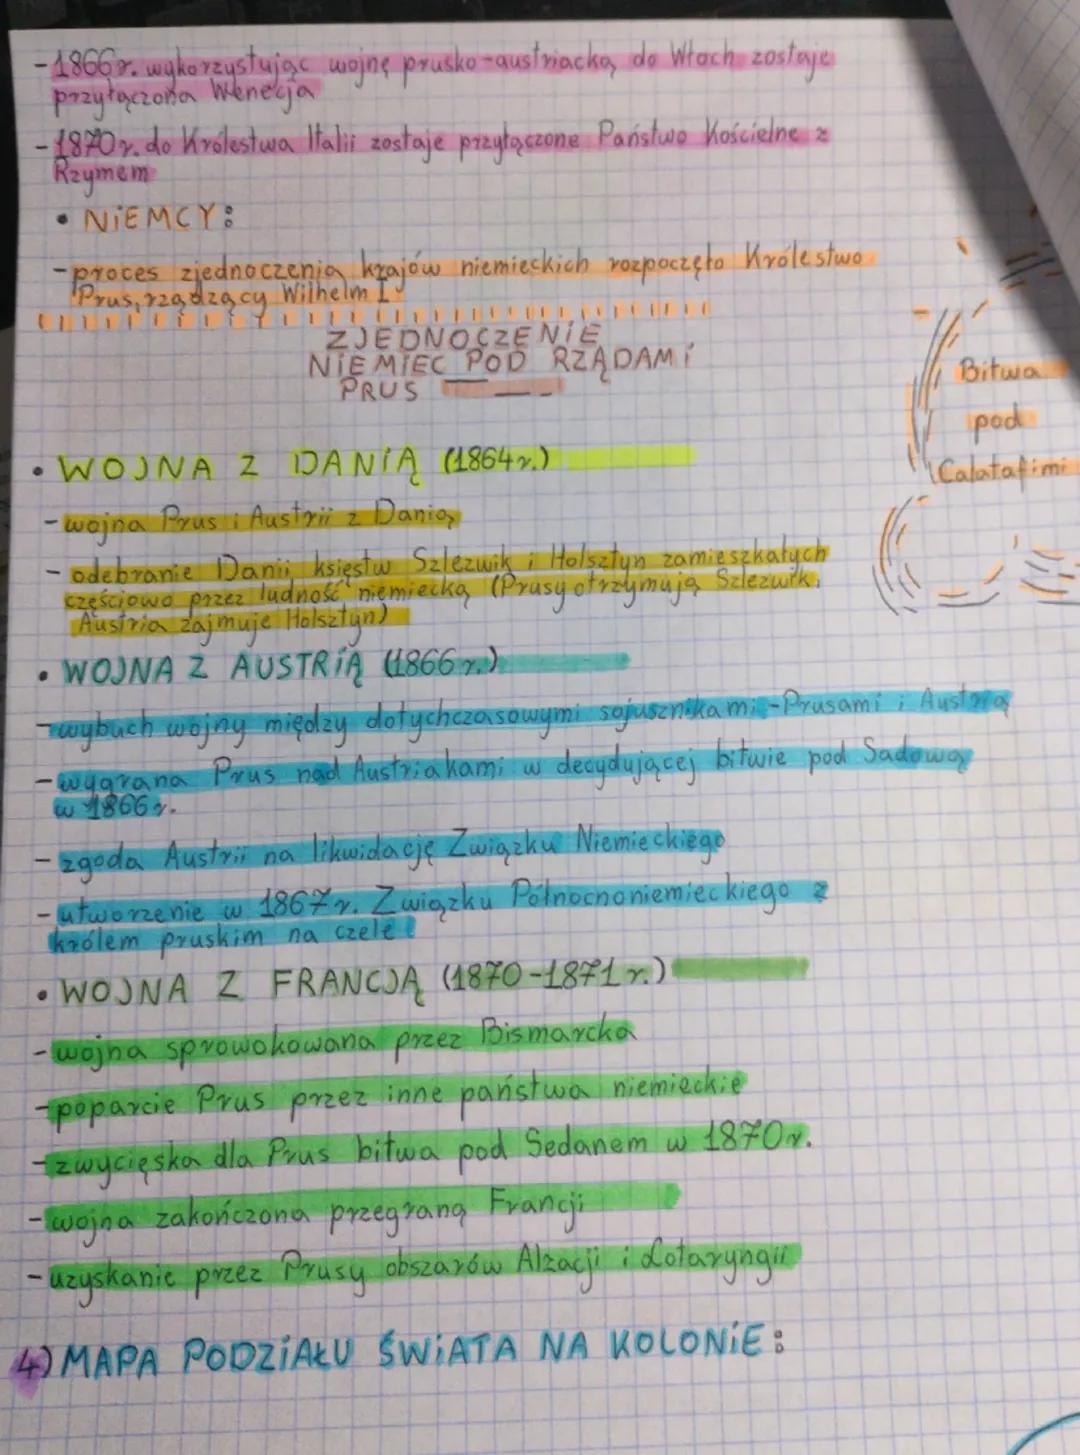 -1866r. wykorzystując wojnę prusko-austriacką do Włoch zostaje
przyłączona Wenecja
-1870r. do Królestwa Italii zostaje przyłączone Państwo Kościelne z
Rzymem
• NIEMCY:
-proces zjednoczenia krajów niemieckich rozpoczęło Królestwo
Prus, rządzący Wilhelm I
ZJEDNOCZENIE
NIEMIEC POD RZĄDAMI
PRUS
Bitwa
pod
Calatafimi
• WOJNA Z DANIĄ (1864r.)
-wojna Prus i Austrii z Danią
- odebranie Danii księstw Szlezwik i Holsztyn zamieszkałych
częściowo przez ludność niemiecką (Prusy otrzymują Szlezwik,
Austria zajmuje Holsztyn)
• WOJNA Z AUSTRIĄ (1866r.)
-wybuch wojny między dotychczasowymi sojusznikami-Prusami i Austrią
-wygrana Prus nad Austriakami w decydującej bitwie pod Sadową
w 1866r.
- zgoda Austrii na likwidację Związku Niemieckiego
-utworzenie w 1867r. Związku Północnoniemieckiego z
królem pruskim na czele
• WOJNA Z FRANCJĄ (1870-1871r.)
-wojna sprowokowana przez Bismarcka
-poparcie Prus przez inne państwa niemieckie
-zwycięska dla Prus bitwa pod Sedanem w 1870r.
-wojna zakończona przegraną Francji
-uzyskanie przez Prusy obszarów Alzacji i Lotaryngii
4) MAPA PODZIAŁU ŚWIATA NA KOLONIE: